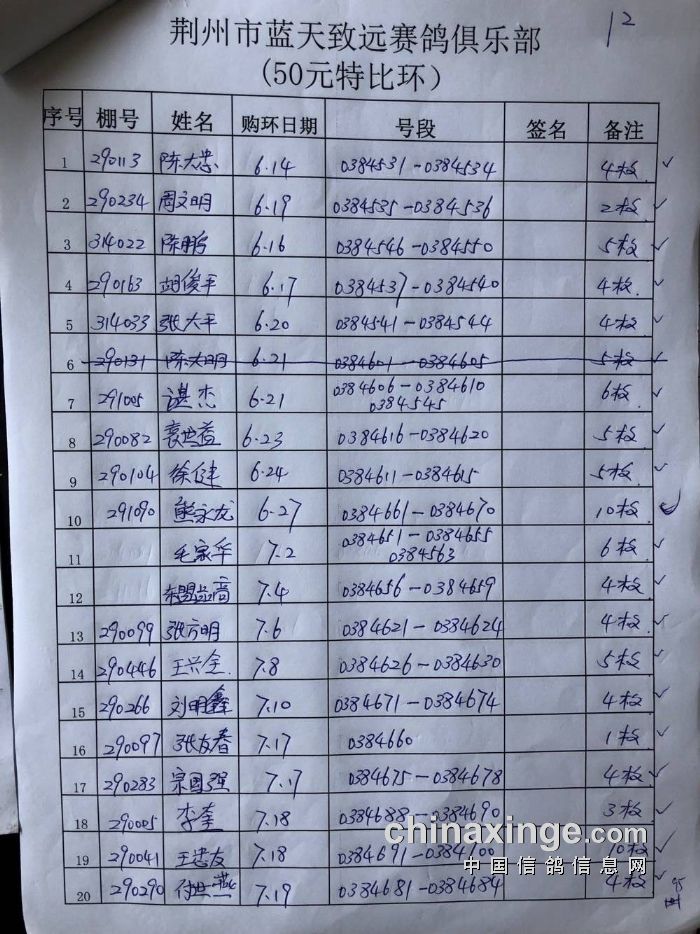 12
荆州市蓝天致远赛鸽俱乐部
(50元特比环)
序号 棚号 姓名 购环日期 号段 签名 备注
1 290113 陈大忠 6.14 0384531-0384534 4枚 ✓
2 290234 周文明 6.19 0384535-0384536 2枚 ✓
3 314022 陈鹏 6.16 0384546-0384550 5枚 ✓
4 290163 胡俊平 6.17 0384537-0384540 4枚 ✓
5 314033 张大平 6.20 0384541-0384544 4枚 ✓
6 290131 陈大明 6.21 0384601-0384605 5枚 ✓
7 291005 谌杰 6.21 0384606-0384610 6枚 ✓
0384545
8 290082 袁世益 6.23 0384616-0384620 5枚 ✓
9 290104 徐健 6.24 0384611-0384615 5枚 ✓
10 291090 熊永龙 6.27 0384661-0384670 10枚 ✓
11 毛家华 7.2 0384651-0384655 6枚 ✓
0384563
12 7.4 0384656-0384659 4枚 ✓
13 290099 张方明 7.6 0384621-0384624 4枚 ✓
14 290446 王兴全 7.8 0384626-0384630 5枚 ✓
15 290266 刘明鑫 7.10 0384671-0384674 4枚 ✓
16 290097 张友春 7.17 0384660 1枚 ✓
17 290283 宗国强 7.17 0384675-0384678 4枚 ✓
18 290005 李奎 7.18 0384688-0384690 3枚 ✓
chinaxinge.com
19 290041 王忠友 7.18 0384691-0384700 10枚 ✓
中国信鸽信息网
20 290290 付世燕 7.19 0384681-0384684 4枚
95